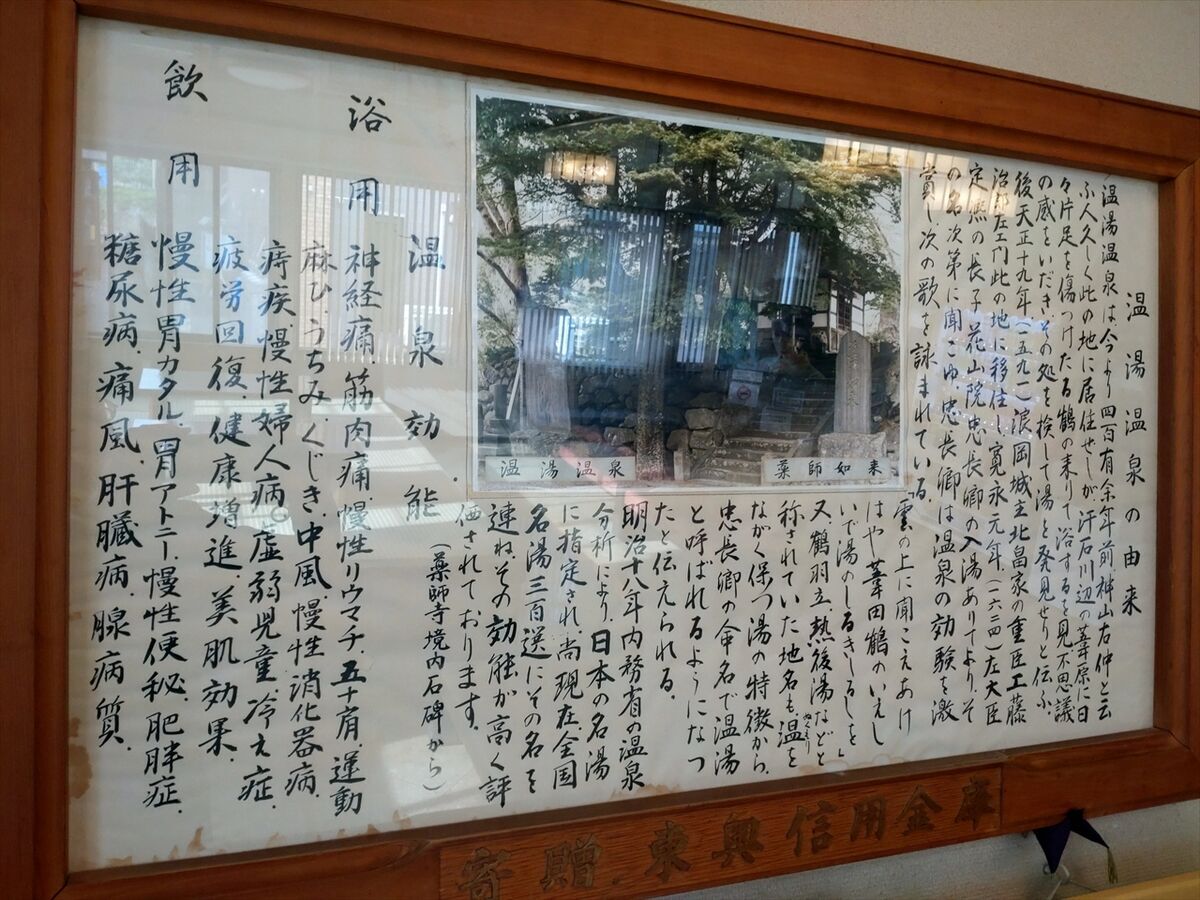 温湯温泉の由来
温湯温泉は今より四百有余年前神山右仲と云
ふ人久しく此の地に居住せしが汗石川辺の葦原に日
々片足を傷つけたる鶴の来りて浴するを見不思議
の感をいだきその処を検して湯を発見せりと伝ふ、
後天正十九年(一五九一)浪岡城主北畠家の重臣工藤
治郎左エ門此の地に移住し寛永元年(一六二四)左大臣
定熈の長子花山院忠長卿の入湯ありてより、そ
の名次第に聞こゆ、忠長卿は温泉の効験を激
賞し次の歌を詠まれている。
雲の上に聞こえあげ
はや葦田鶴のいえし
いで湯のしるきしるしを」
又、鶴羽立、熱後湯などと
称されていた地名も、温を
ながく保つ湯の特徴から、
忠長卿の命名で温湯
と呼ばれるようになっ
たと伝えられる。
明治十八年内務省の温泉
分析により、日本の名湯
に指定され、尚現在、全国
名湯三百送にその名を
連ね、その効能が高く評
価されております。
(薬師寺境内石碑から)
温湯温泉
薬師如来
温泉効能
浴用
神経痛、筋肉痛、慢性リウマチ、五十肩、運動
麻ひ、うちみ、くじき、中風、慢性消化器病、
痔疾、慢性婦人病、虚弱児童、冷え症、
疲労回復、健康増進、美肌効果、
飲用
慢性胃カタル、胃アトニー、慢性便秘、肥胖症、
糖尿病、痛風、肝臓病、腺病質、
寄贈 東奥信用金庫